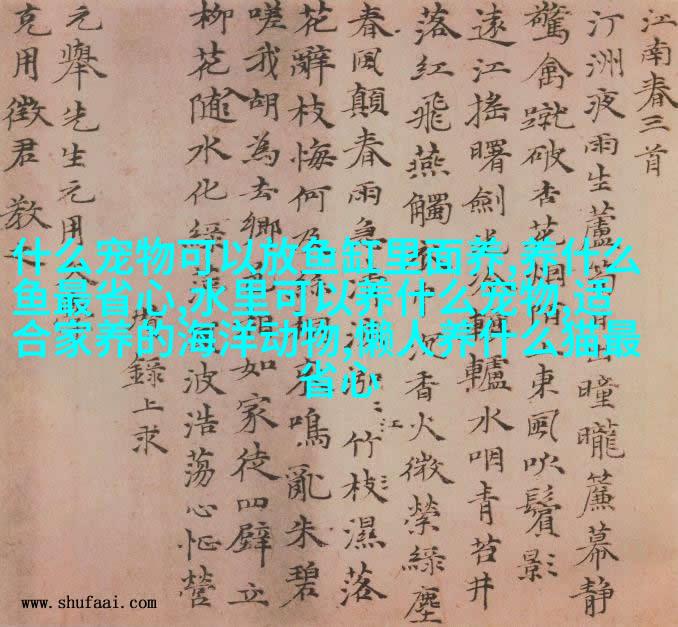 什么宠物可以放鱼缸里面养,养什么
鱼最省心,水里可以养什么宠物,适
合家养的海洋动物,懒人养什么猫最
省心
江南春三首
汀洲夜雨生蘆笋日出曈曨簾幕静
驚禽蹴破杏花烟陌上東風吹鬢影
遠江搖曙劍光冷轆轤水咽青苔井
落紅飛燕觸衣巾沉香火微縈綠塵
春風顛春雨急清江竹枝濕落
花辭枝悔何及鳴亂朱碧
嗟我胡為去鄉邑相如家徒四壁立
柳花隨水化綠萍風波浩蕩心怔營
錄上求
元舉先生元用
克用徵君教
www.shufaai.com